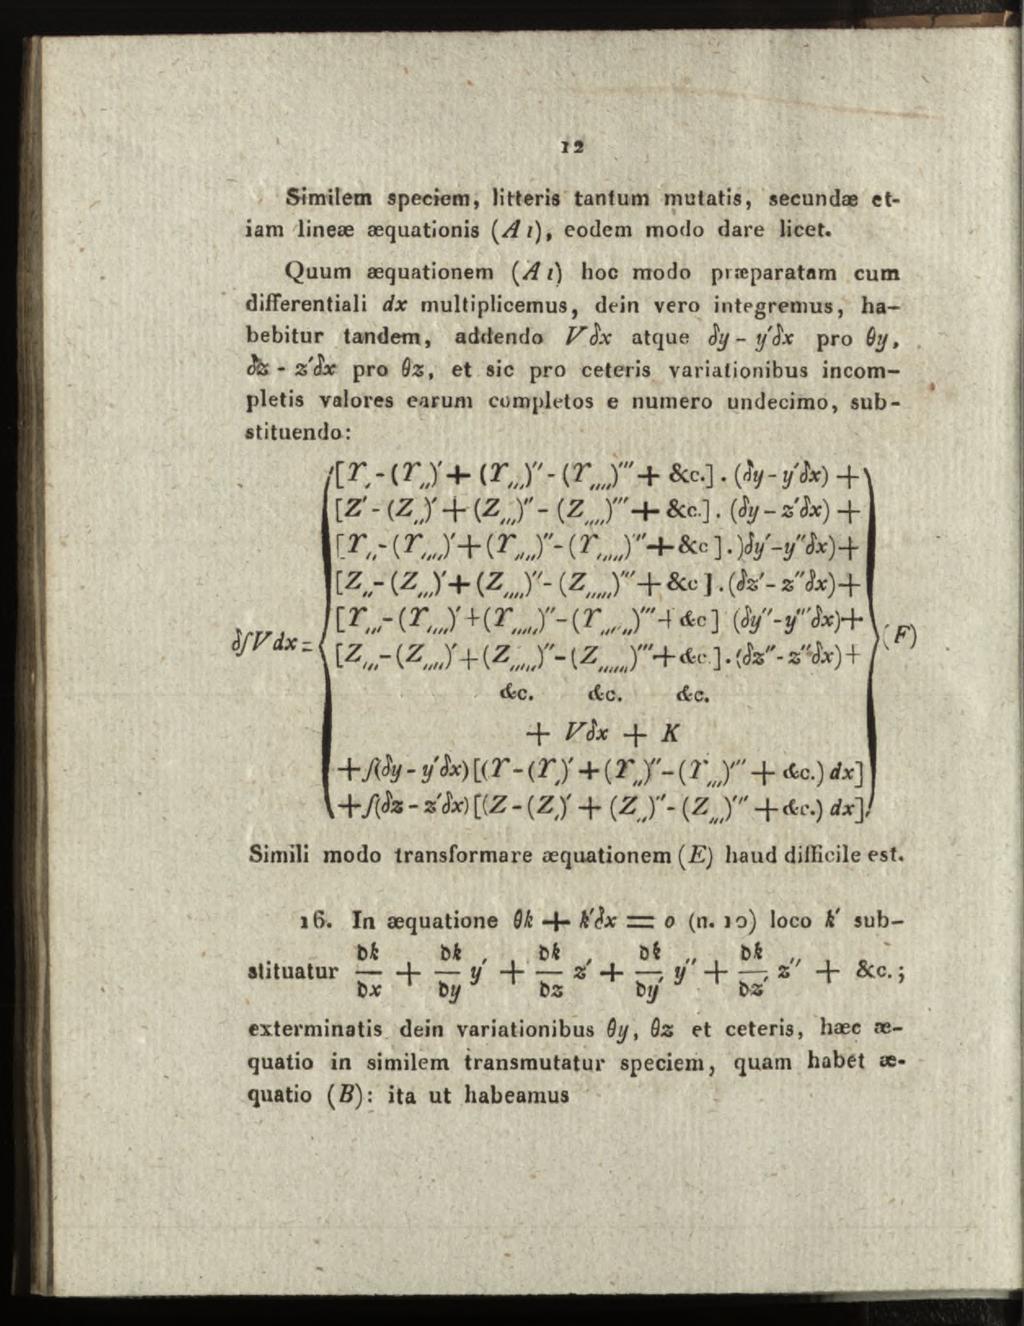 12
Similem speciem, litteris tantum mutatis, secundæ et-
iam lineæ æquationis (A 1), eodem modo dare licet.
Quum æquationem (A 1) hoc modo præparatam cum
differentiali dx multiplicemus, dein vero integremus, ha-
bebitur tandem, addendo Vδx atque δy - y′δx pro θy,
δz - z′δx pro θz, et sic pro ceteris variationibus incom-
pletis valores earum completos e numero undecimo, sub-
stituendo:
[ϒ, - (ϒ,,)′ + (ϒ,,,)″ - (ϒ,,,,)‴ + &c.] . (δy - y′δx) +
[Z′ - (Z,,)′ + (Z,,,)″ - (Z,,,,)‴ + &c.] . (δy - z′δx) +
[ϒ,, - (ϒ,,,)′ + (ϒ,,,,)″ - (ϒ,,,,,)‴ + &c ] . )δy′ - y″δx) +
[Z,, - (Z,,,)′ + (Z,,,,)″ - (Z,,,,,)‴ + &c ] . (δz′ - z″δx) +
[ϒ,,, - (ϒ,,,,)′ + (ϒ,,,,,)″ - (ϒ,,,,,,)‴ + &c ] (δy″ - y‴δx) +
δ∫Vdx = [Z,,, - (Z,,,,)′ + (Z,,,,,)″ - (Z,,,,,,)‴ + &c.] . (δz″ - z‴δx) + (F)
&c. &c. &c.
+ Vδx + K
+ ∫(δy - y′δx) [(ϒ - (ϒ,)′ + (ϒ,,)″ - (ϒ,,,)‴ + &c.) dx]
+ ∫(δz - z′δx) [(Z - (Z,)′ + (Z,,)″ - (Z,,,)‴ + &c.) dx]
Simili modo transformare æquationem (E) haud difficile est.
16. In æquatione θk + k′δx = o (n. 10) loco k′ sub-
stituatur ∂k/∂x + ∂k/∂y y′ + ∂k/∂z z′ + ∂k/∂y′ y″ + ∂k/∂z′ z″ + &c.;
exterminatis dein variationibus θy, θz et ceteris, hæc æ-
quatio in similem transmutatur speciem, quam habet æ-
quatio (B): ita ut habeamus